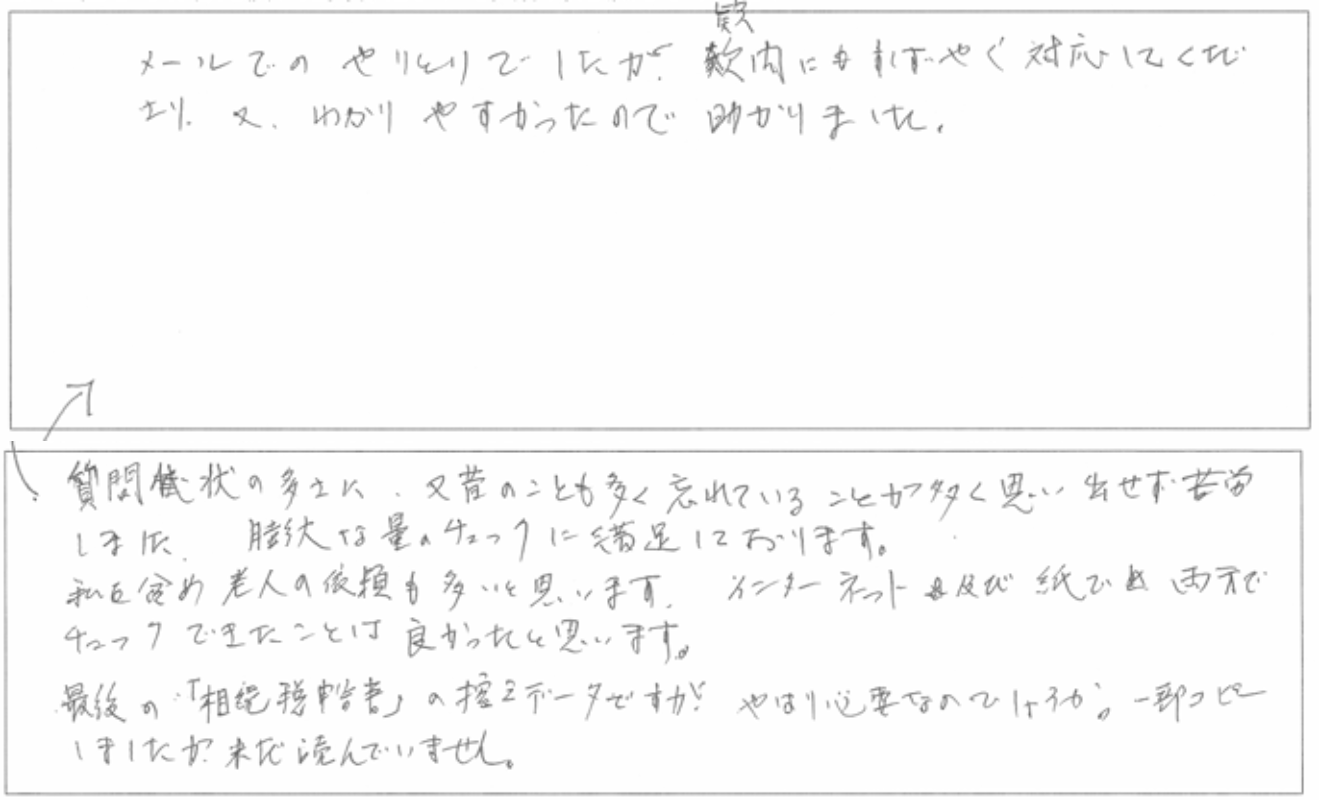 メールでのやりとりでしたが、質問にもすばやく対応してくだ
さり、又、わかりやすかったので助かりました。
質問状の多さに、又昔のことも多く忘れていることが多く思い出せず苦労
しました。膨大な量のチェックに満足しております。
私を含め老人の依頼も多いと思います。インターネット及び紙で両方で
チェックできたことは良かったと思います。
最後の「相続税申告書」の控えデータですが、やはり必要なのでしょうか。一部コピー
しましたが未だ読んでいません。